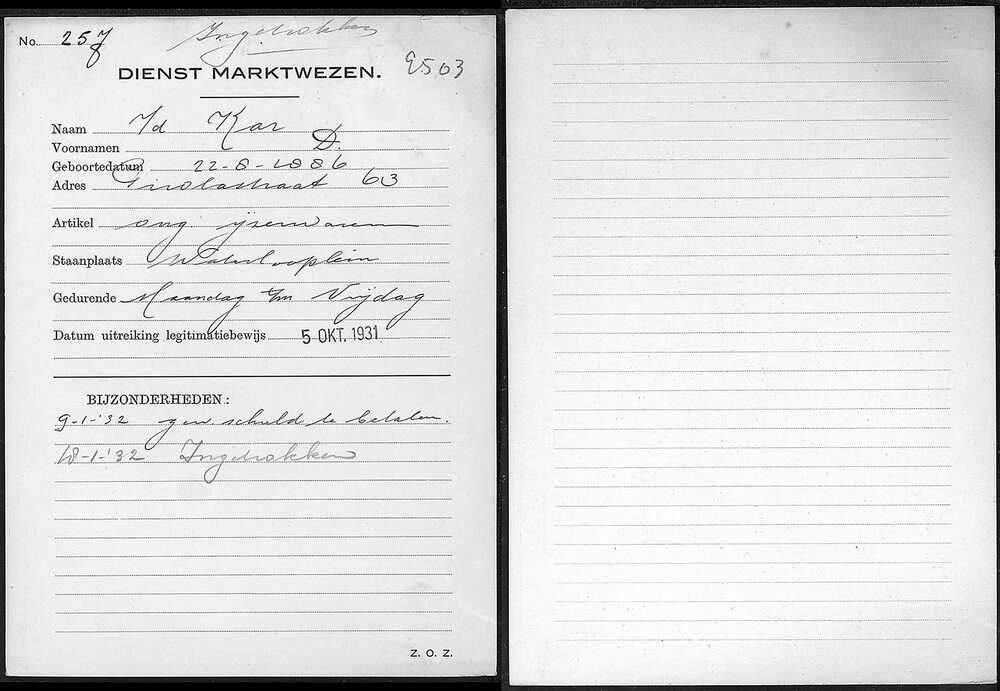 No. 257
Ingetrokken
DIENST MARKTWEZEN.
9503
Naam v/d Kar
Voornamen D.
Geboortedatum 22-8-1886
Adres straat 63
Artikel ong. ijzerwaren
Staanplaats Waterlooplein
Gedurende Maandag t/m Vrijdag
Datum uitreiking legitimatiebewijs 5 OKT. 1931
BIJZONDERHEDEN:
9-1-'32 gew. schuld te betalen.
18-1-'32 Ingetrokken
Z. O. Z.